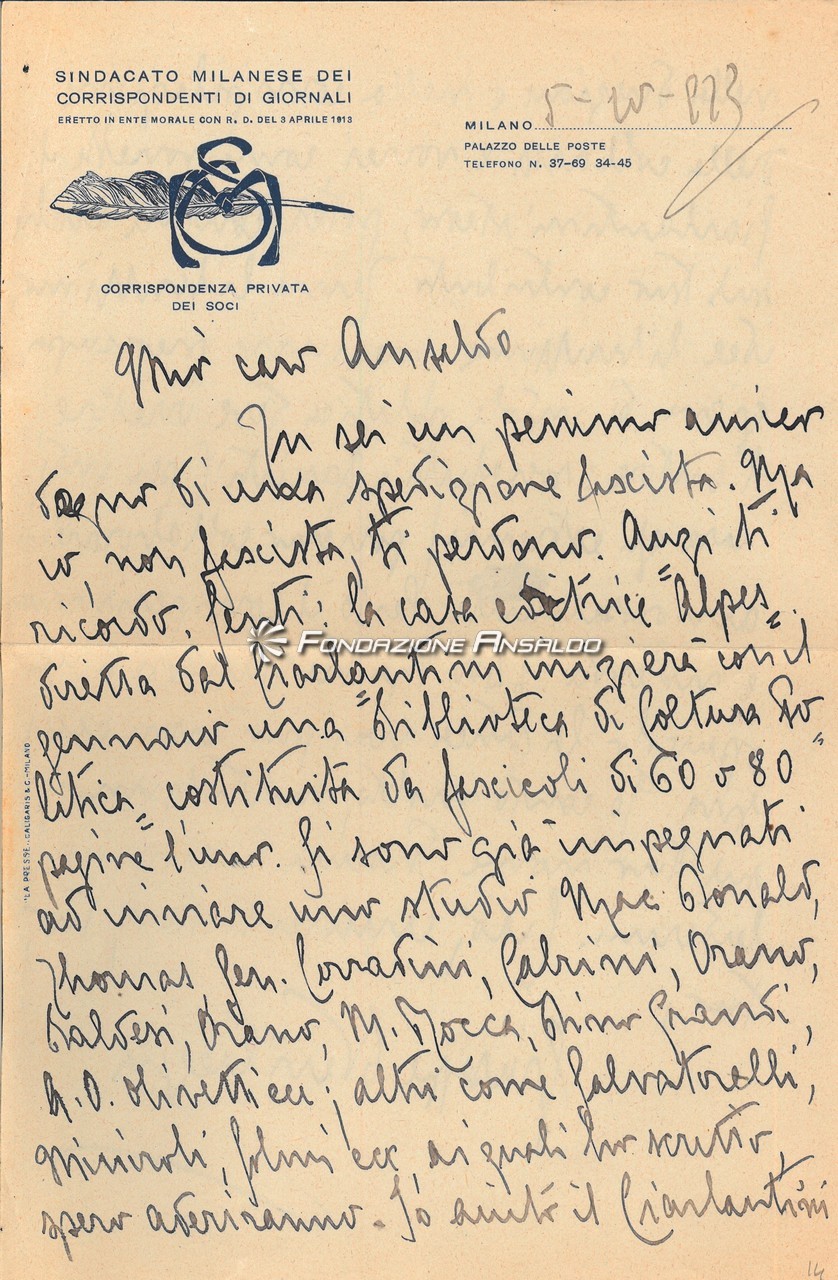 SINDACATO MILANESE DEI
CORRISPONDENTI DI GIORNALI
ERETTO IN ENTE MORALE CON R. D. DEL 3 APRILE 1913
CORRISPONDENZA PRIVATA
DEI SOCI
MILANO 5-10-923
PALAZZO DELLE POSTE
TELEFONO N. 37-69 34-45
Mio caro Ansaldo
Tu sei un pessimo amico
degno di una spedizione fascista. Ma
io, non fascista, ti perdono. Anzi ti
ricordo. Senti: la casa editrice "Alpes"
FONDAZIONE ANSALDO
diretta dal Ciarlantini inizierà con il
gennaio una "Biblioteca di Coltura Po-
litica" costituita da fascicoli di 60 o 80
pagine l'uno. Si sono già impegnati
ad inviare uno studio Mac Donald,
Thomas, Gen. Corradini, Cabrini, Orano,
Baldesi, Orano, M. Rocca, Dino Grandi,
A. O. Olivetti ecc; altri come Salvatorelli,
Missiroli, Solmi ecc ai quali ho scritto,
spero aderiranno. Io aiuto il Ciarlantini
"LA PRESSE" CALIGARIS & C. - MILANO
14